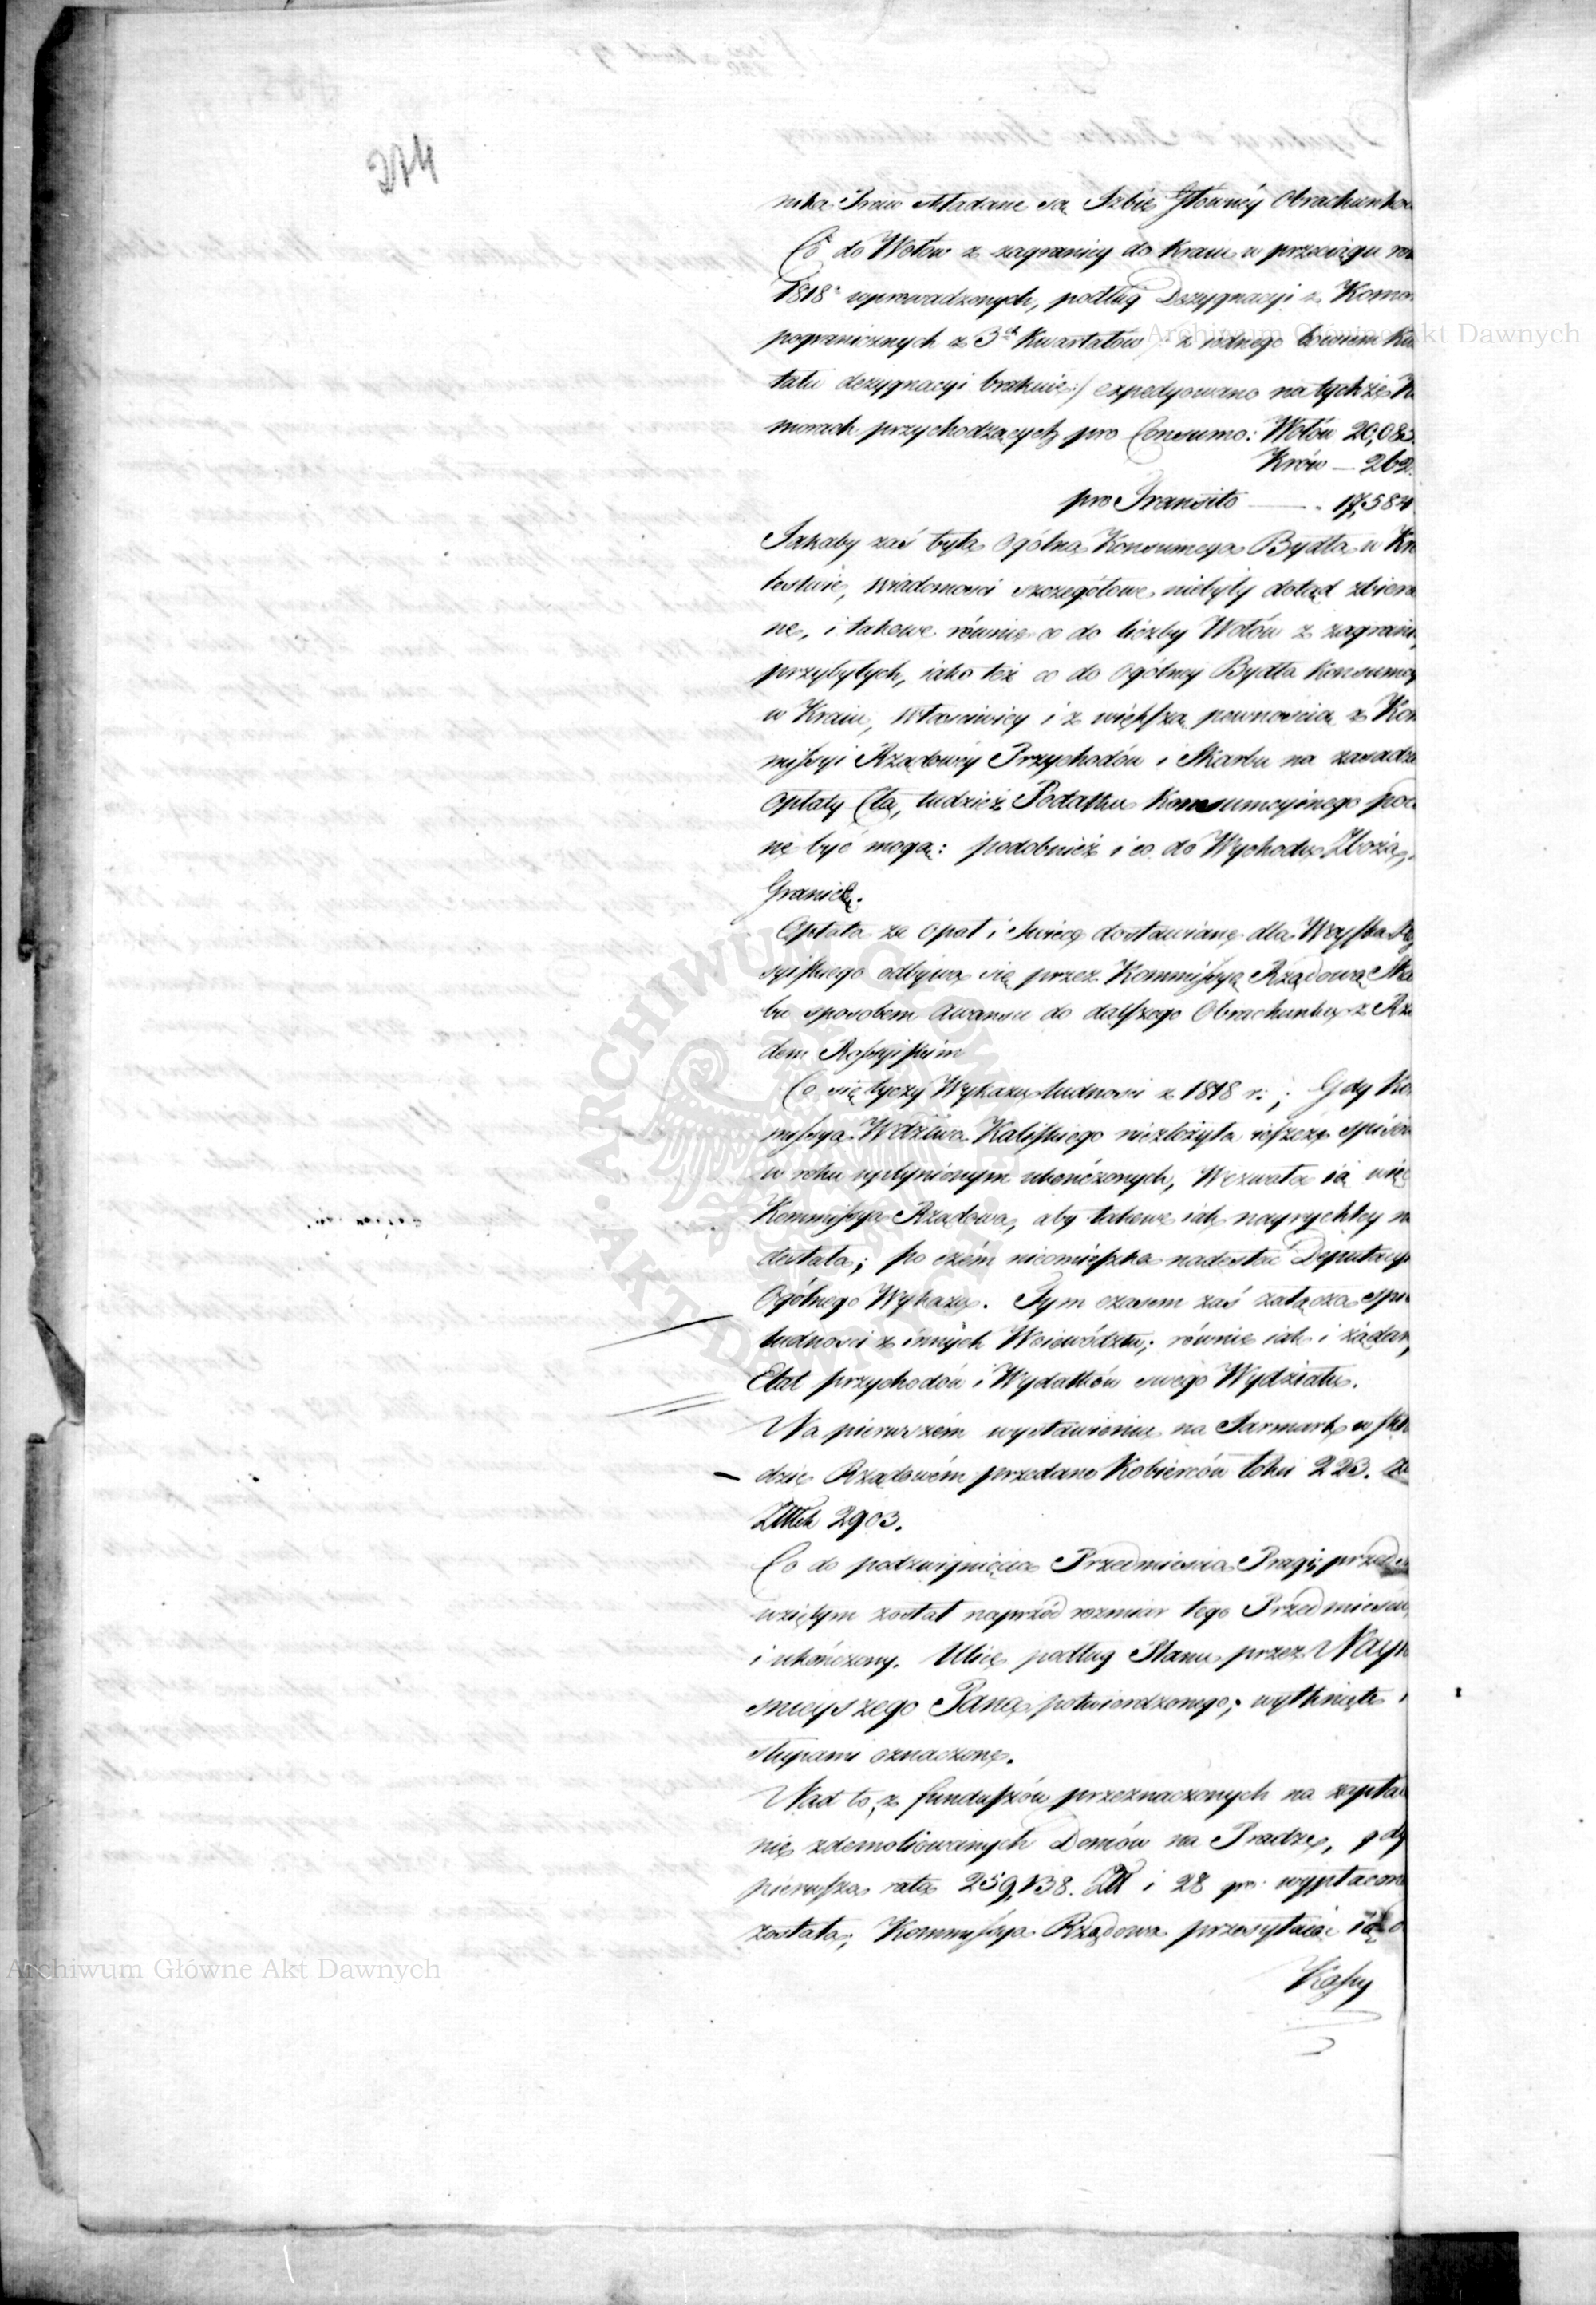 274
nika Praw składane są Izbie Głowney Obrachunkow
Co do Wołow z zagranicy do Kraiu w przeciągu rok
1818º wprowadzonych, podług Dezygnacyi z Komor
pogranicznych z 3ch Kwartałow /: z iednego bowiem Kwa
tału dezygnacyi brakuie :/ expedyowano na tychże Ko
morach przychodzących pro Consumo: Wołów 20,083.
Krów — 262.
pro Transito — 17,584
Jakaby zaś była Ogólna Konsumcya Bydła w Kró
lestwie, wiadomości szczegółowe niebyły dotąd zbiera
ne, i takowe równie co do liczby Wołów z zagranic
przybyłych, iako też co do Ogólney Bydła Konsumcy
w Kraiu, właściwiey i z większą pewnością z Kom
missyi Rządowey Przychodów i Skarbu na zasadzie
Opłaty Cła, tudzież Podatku Konsumcyinego powz
ne być mogą: podobnież i co do Wychodu Zboża,
Granicę.
Opłata za Opał i Swiece dostawiane dla Woyska Ro
syiskiego odbywa się przez Kommissyą Rządową Ska
bu sposobem awansu do dalszego Obrachunku z Rzą
dem Rossyiskim
Co się tyczy Wykazu ludności z 1818 r:; Gdy Ko
missya Wdztwa Kaliskiego niezłożyła ieszcze spisów
w roku upłynionym ukończonych, Wezwała ią więc
Kommissya Rządowa, aby takowe iak nayrychley na
desłała; po czém nieomieszka nadesłać Deputacyi
Ogólnego Wykazu. Tym czasem zaś załącza spis
ludności z innych Woiewództw; równie iak i żądan
Etat przychodów i Wydatków swego Wydziału.
Na pierwszém wystawieniu na Jarmark w skła
dzie Rządowém przedano Kobierców łokci 223. za
Złtch 2903.
Co do podzwignięcia Przedmieścia Pragi; przeds
wziętym został naprzód rozmiar tego Przedmieścia
i ukończony. Ulice podług Planu przez Nayia
snieyszego Pana potwierdzonego; wytknięte i
słupami oznaczone.
Nad to, z funduszów przeznaczonych na zapłace
nie zdemoliowanych Domów na Pradze, gdy
pierwsza rata 259,138. Złt i 28 gr. wypłacon
została; Kommissya Rządowa przesyłaiąc ią d
Kassy
Archiwum Główne Akt Dawnych
Archiwum Główne Akt Dawnych
ARCHIWUM GŁÓWNE AKT DAWNYCH